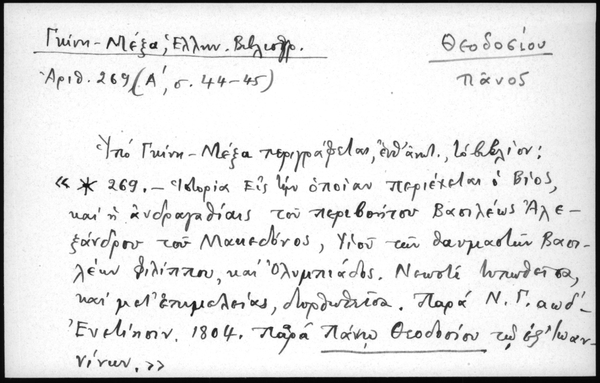 Γκίνη-Μέξα, Ἑλλην. Βιβλιογρ.
Θεοδοσίου
Ἀριθ. 269 (Α΄, σ. 44-45)
Πᾶνος
Ὑπό Γκίνη-Μέξα περιγράφεται, ἐνθ' ἀνωτ., τό βιβλίον:
«* 269. – Ἱστορία Εἰς τήν ὁποίαν περιέχεται ὁ Βίος,
καί ἡ ἀνδραγαθίαις τοῦ περιβοήτου Βασιλέως Ἀλε-
ξάνδρου τοῦ Μακεδόνος, Υἱοῦ τῶν θαυμαστῶν Βασι-
λέων Φιλίππου, καί Ὀλυμπιάδος. Νεωστί τυπωθεῖσα,
καί μετ' ἐπιμελείας, διορθωθεῖσα. Παρά Ν. Γ. αωδ΄.
Ἐνετίησιν. 1804. Παρά Πάνῳ Θεοδοσίου τῷ ἐξ Ἰωαν-
νίνων.»